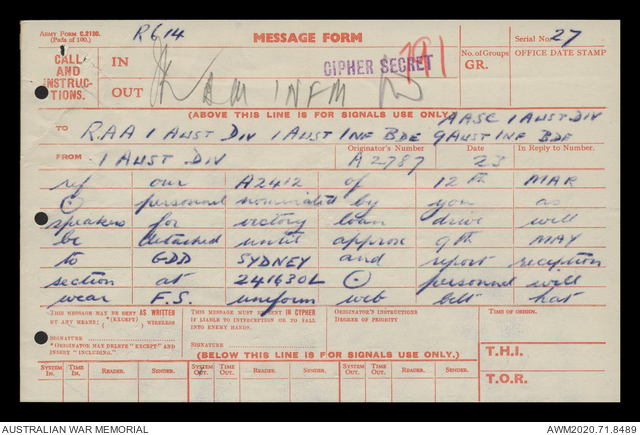 ARMY FORM C.2130.
(Pads of 100.)
R614
MESSAGE FORM
Serial No. 27
CALL
AND
INSTRUC-
TIONS.
IN
OUT
CIPHER SECRET
791
No. of Groups
GR.
OFFICE DATE STAMP
AM INFM
(ABOVE THIS LINE IS FOR SIGNALS USE ONLY.)
AASC 1 AUST DIV
TO RAA 1 AUST DIV 1 AUST INF BDE 9 AUST INF BDE
Originator's Number
Date
In Reply to Number.
FROM 1 AUST DIV A2787 23
ref our A2412 of 12th MAR
personnel nominated by you as
speakers for victory loan drive will
be detached until approx 9th MAY
to GDD SYDNEY and report reception
section at 241630L personnel will
wear F.S. uniform web belt hat
THIS MESSAGE MAY BE SENT AS WRITTEN
BY ANY MEANS *(EXCEPT) WIRELESS
SIGNATURE
*ORIGINATOR MAY DELETE "EXCEPT" AND
INSERT "INCLUDING."
THIS MESSAGE MUST BE SENT IN CIPHER
IF LIABLE TO INTERCEPTION OR TO FALL
INTO ENEMY HANDS.
SIGNATURE
ORIGINATOR'S INSTRUCTIONS
DEGREE OF PRIORITY
TIME OF ORIGIN.
(BELOW THIS LINE IS FOR SIGNALS USE ONLY.)
T.H.I.
SYSTEM IN. TIME IN. READER. SENDER. SYSTEM OUT. TIME OUT. READER. SENDER. SYSTEM OUT. TIME OUT. READER. SENDER.
T.O.R.
AUSTRALIAN WAR MEMORIAL
AWM2020.71.8489